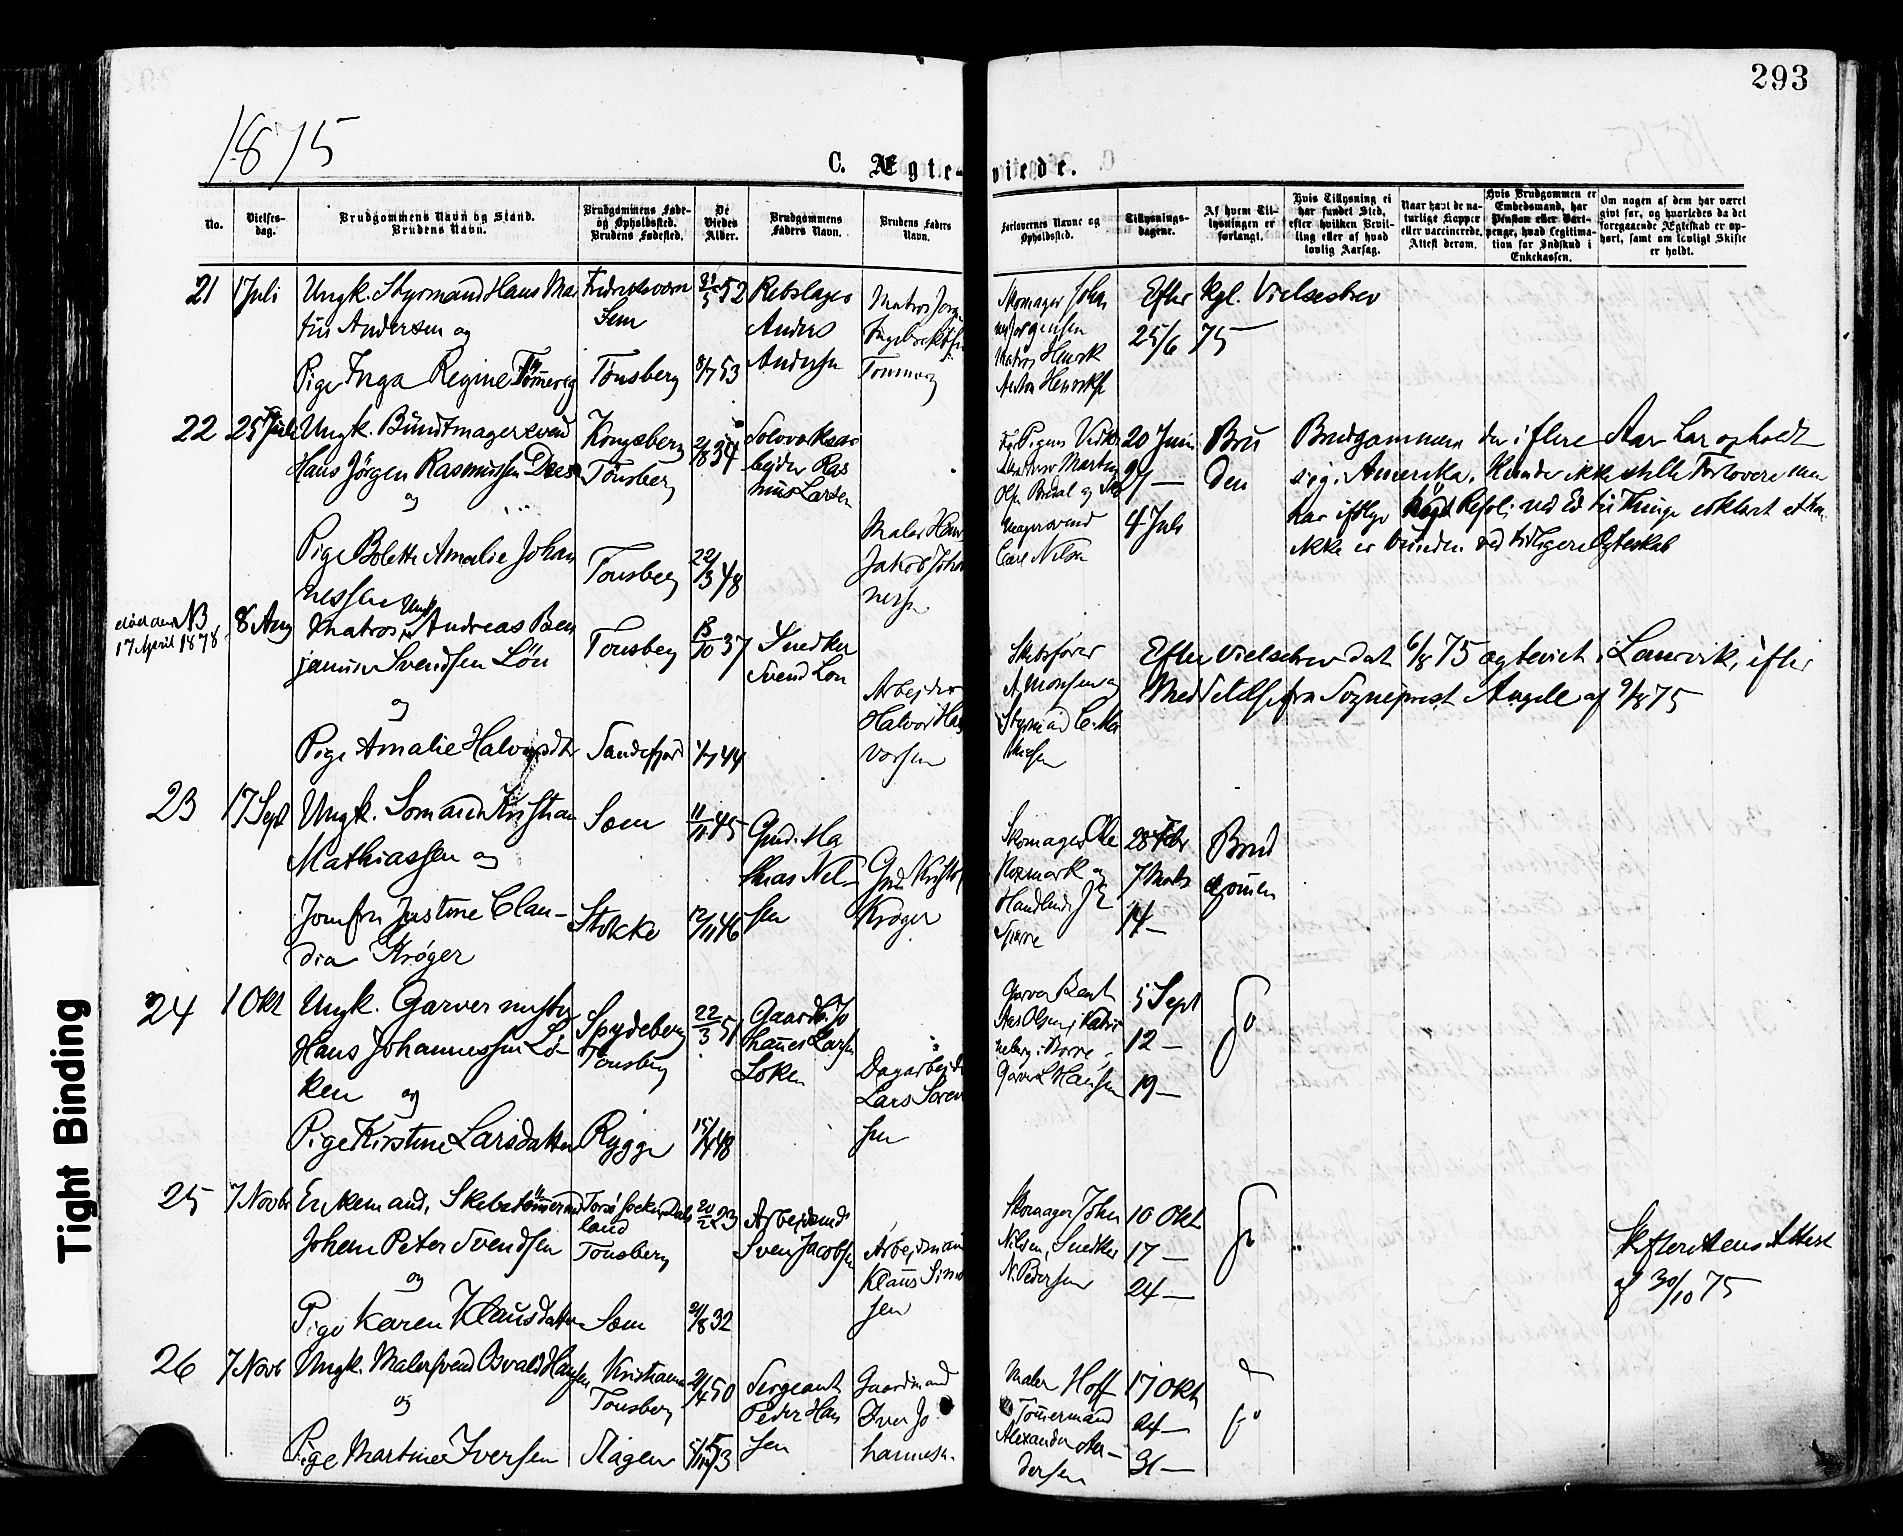 293
1875
C. Ægte-viede.
No.
Vielses-dag.
Brudgommens Navn og Stand.
Brudens Navn.
Brudgommens Føde-
og Opholdssted.
Brudens Fødested.
De
Viedes
Alder.
Brudgommens
Faders Navn.
Brudens Faders
Navn.
Forlovernes Navne og
Opholdssted.
Tillysnings-
dagene.
Af hvem Til-
lysningen er
forlangt.
Hvis Tillysning ei
har fundet Sted,
efter hvilken Bevil-
ling eller af hvad
lovlig Aarsag.
Naar havt de na-
turlige Kopper
eller vaccinerede,
Attest derom.
Hvis Brudgommen er
Embedsmand, har
Pension eller Vart-
penge, hvad Legitima-
tion for Indskud i
Enkekassen.
Om nogen af dem har været
givt før, og hvorledes da det
foregaaende Ægteskab er op-
hørt, samt om lovligt Skifte
er holdt.
21
1 Juli
Ungk. Styrmand Hans Ma
tius Andersen og
Pige Inga Regine Tömmevig
Fredriksværn
Sem
Tønsberg
52
8/7 53
Rebslager
Anders
Andersen
Matros Jørg
Skomager Johan
nes Jørgensen
Matros Henrik
Anton Henriks
Efter kgl. Vielsesbrev
25/6 75
22
25 Juli
Ungk. Bundtmagersvend
Hans Jörgen Rasmussen Dres
og
Pige Bolette Amalie Johan
nessen
Kongsberg
Tönsberg
Tonsberg
34
22/3 48
Solvværksar
bejder Ras
mus Larsen
Maler Hans
Jakob Joha
nesen
Olsen Bredal og
magersvend
Carl Nilsen
20 Juni
27 —
4 Juli
Bru
den
Brudgommen der i flere Aar har opholdt
sig i Amerika, kunde ikke stille Forlovere men
har ifølge kgl Resol: ved Ed til Thinge erklært at han
ikke er bunden ved tidligere Ægteskab
død den NB
17 April 1878
8 Aug
Ungk
Matros Andreas Ben
jamin Svendsen Lön
og
Pige Amalie Halvorsdtr
Tonsberg
Sandefjord
37
1/7 44
Snedker
Svend Lon
Arbejder
Halvor Hal
vorsen
Skibsfører
A. Monsen og
Styrmand C. Ma
thiesen
Efter Vielsesbrev dat 6/8 75 ægteviet i Laurvik, ifler
Meddelelse fra Sogneprest Angell af 9/8 75
23
17 Sept
Ungk. Sømand Kristian
Mathiassen og
Jomfru Justine Clau-
dia Krøger
Sæm
Stokke
11/11 45
12/11 46
Gmd. Ma
thias Nil
sen
Gmd Kristo
Krøger
Skomager Ole
Rosmark og
Handlende
Spørre
28 Febr
7 Mars
14 —
Brud
gommen
24
1 Okt
Ungk. Garvermester
Hans Johannessen Lö-
ken og
Pige Kirstine Larsdatter
Spydeberg
Tønsberg
Rygge
22/3 51
48
Gaardb. Jo
hannes Larsen
Loken
Dagarbejder
Lars Soren
sen
Garver Bent
5 Sept
12 —
19 —
do
25
7 Novbr
Enkemand, Skibstømmermand
Johan Peter Svendsen
og
Pige Karen Klausdatter
land
Tonsberg
Sæm
23
32
Arbejdsmd
Sven Jacobsen
Arbejdsman
Klaus Simo
sen
Skomager Johan
Nilsen, Snedker
N. Pedersen
10 Okt
17 —
24 —
do
Skifterettens Attest
af 30/10 75
26
7 Novb
Ungk. Malersvend Osvald Hansen
og
Pige Martine Iversen
Kristiania
Tonsberg
Slagen
50
53
Sergeant
Peder Han
sen
Gaardmand
Iver Jo
hannesen
Maler Hoff
Tømmermand
Alexander An-
dersen
17 Okt
24 —
31 —
do
Tight Binding